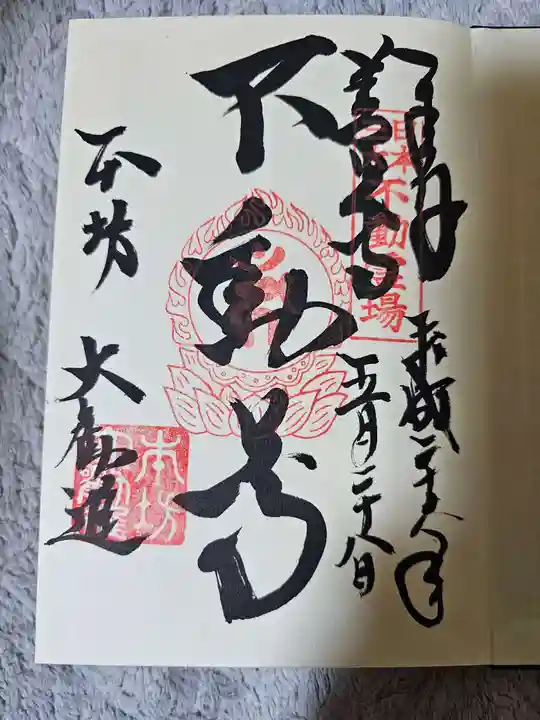 奉拝
平成二十八年
善光寺
五月二十八日
日本不動霊場
不動尊
本坊 大勧進
本坊